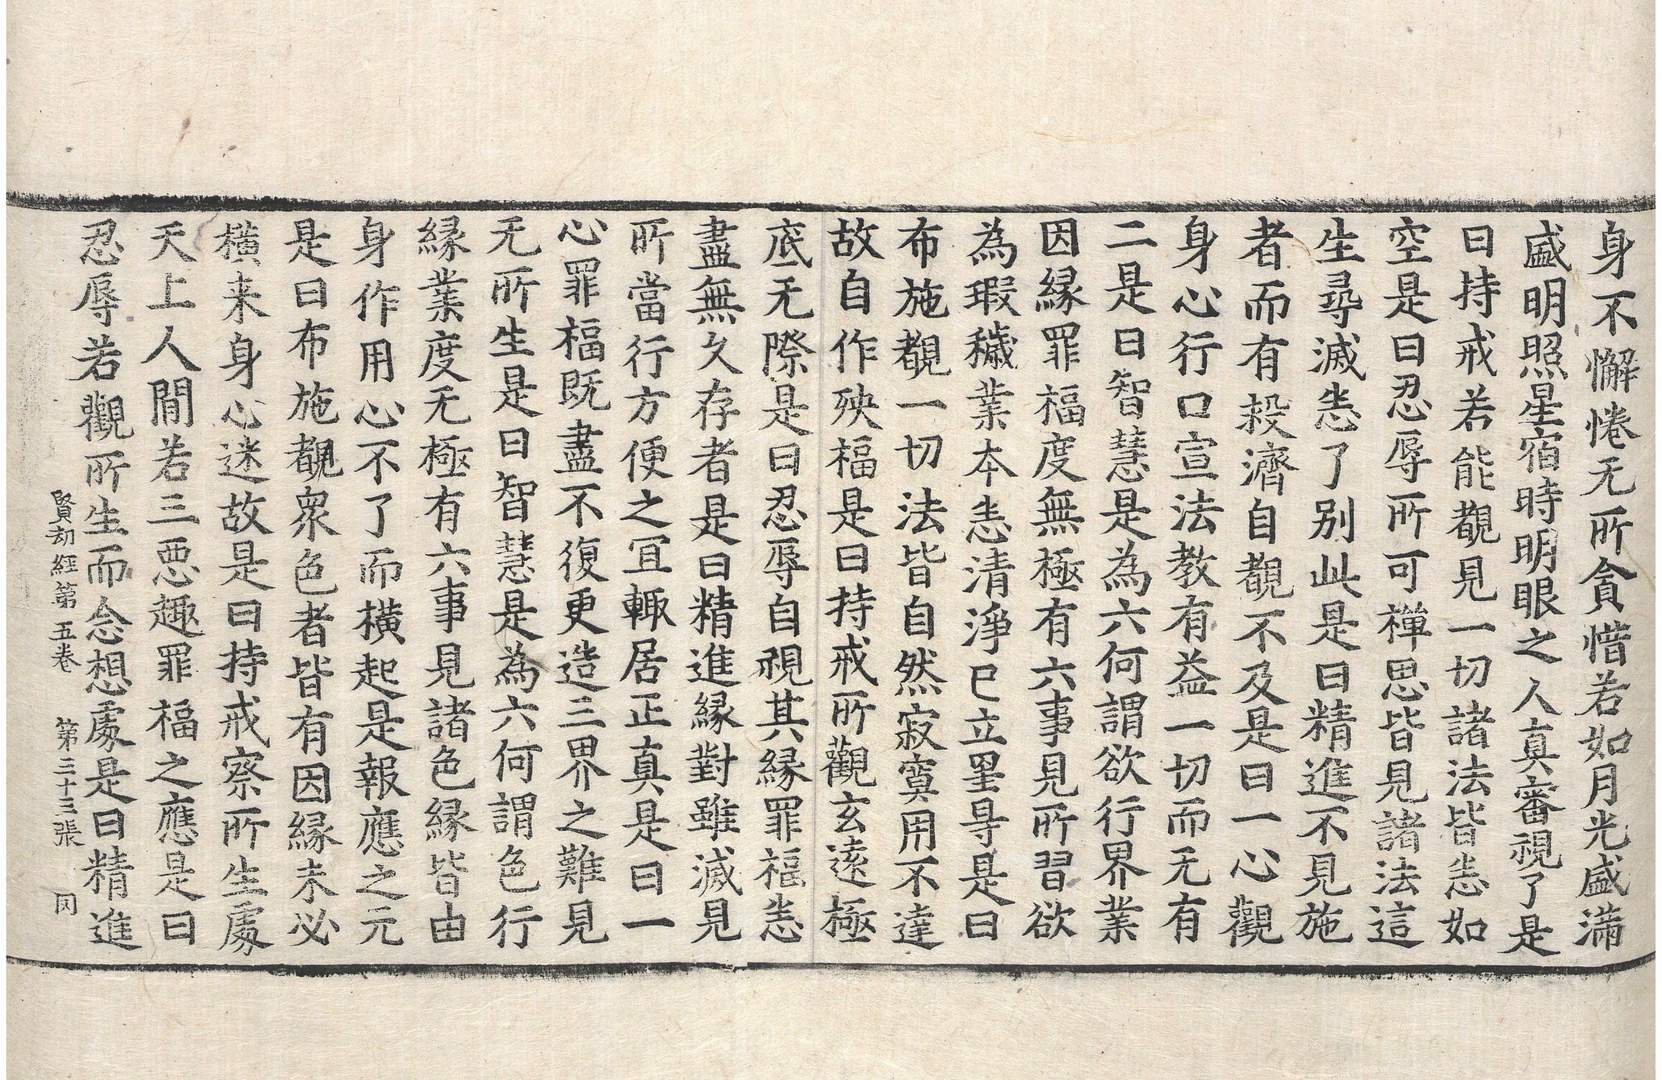 身不懈惓无所貪惜若如月光盛滿
盛明照星宿時明眼之人真審視了是
曰持戒若能覩見一切諸法皆悉如
空是曰忍辱所可禪思皆見諸法這
生尋滅悉了别此是曰精進不見施
者而有救濟自覩不及是曰一心觀
身心行口宣法教有益一切而无有
二是曰智慧是為六何謂欲行界業
因緣罪福度無極有六事見所習欲
為瑕穢業本悉清淨已立星㝵是曰
布施覩一切法皆自然寂寞用不達
故自作殃福是曰持戒所觀玄遠極
底无際是曰忍辱自視其緣罪福悉
盡無久存者是曰精進緣對雖滅見
所當行方便之冝輙居正真是曰一
心罪福既盡不復更造三界之難見
无所生是曰智慧是為六何謂色行
緣業度无極有六事見諸色緣皆由
身作用心不了而橫起是報應之元
是曰布施覩衆色者皆有因緣未必
橫来身心迷故是曰持戒察所生處
天上人間若三惡趣罪福之應是曰
忍辱若觀所生而念想處是曰精進
賢劫經第五卷 第三十三張 同